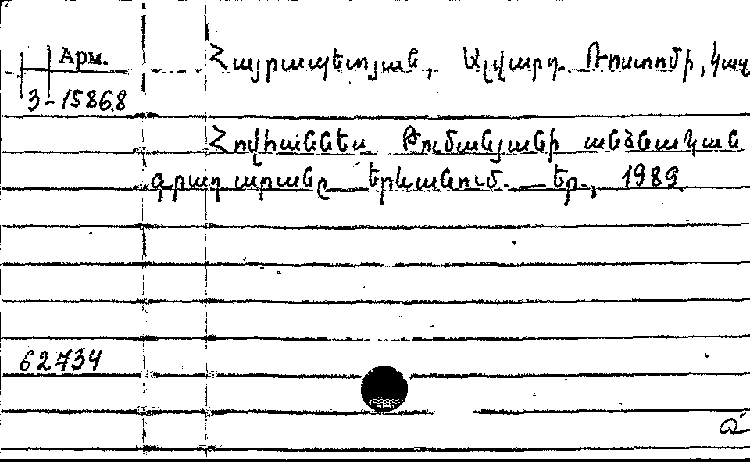 Арм.
Հայրապետյան, Ալվարդ Ռոստոմի, կազ
3-15868
Հովհաննես Թումանյանի անձնական
գրադարանը Երևանում. — Եր., 1989
62734